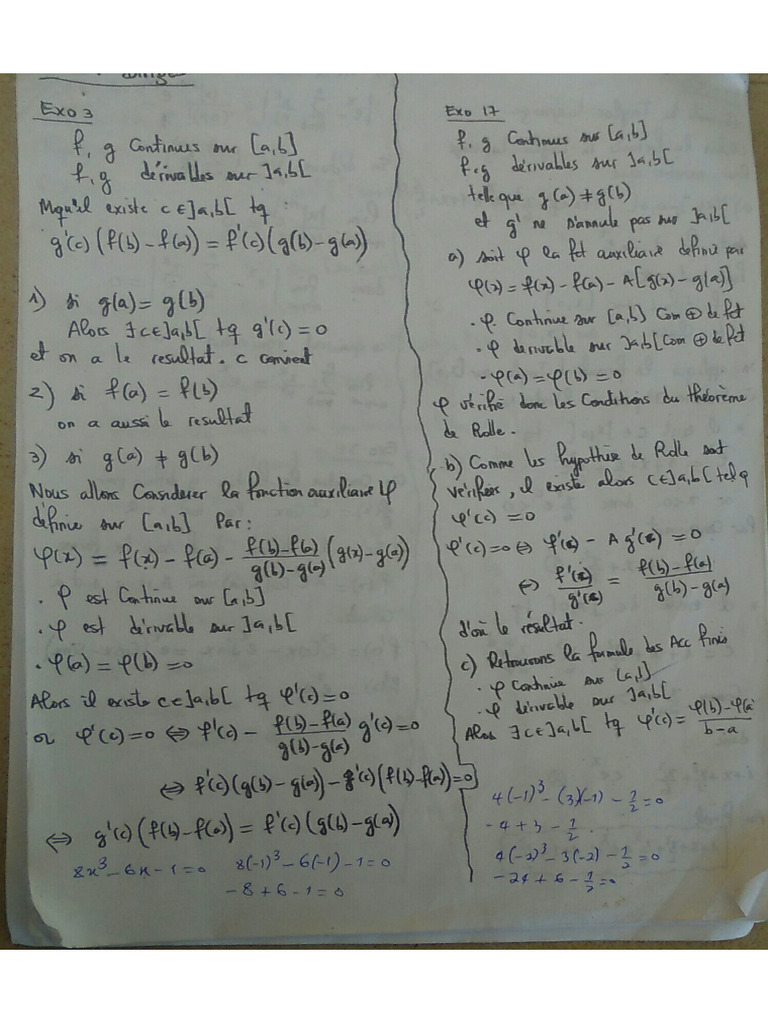 Exo 3
f, g Continues sur [a,b]
f, g dérivables sur ]a,b[
Mqu'il existe c ∈ ]a,b[ tq :
g'(c) (f(b) - f(a)) = f'(c) (g(b) - g(a))
1) si g(a) = g(b)
Alors ∃ c ∈ ]a,b[ tq g'(c) = 0
et on a le resultat. c convient
2) si f(a) = f(b)
on a aussi le resultat
3) si g(a) ≠ g(b)
Nous allons Considerer la fonction auxiliaire φ
définie sur [a,b] Par :
φ(x) = f(x) - f(a) - (f(b) - f(a))/(g(b) - g(a)) (g(x) - g(a))
. φ est Continue sur [a,b]
. φ est dérivable sur ]a,b[
. φ(a) = φ(b) = 0
Alors il existe c ∈ ]a,b[ tq φ'(c) = 0
or φ'(c) = 0 ⇔ f'(c) - (f(b) - f(a))/(g(b) - g(a)) g'(c) = 0
⇔ f'(c) (g(b) - g(a)) - g'(c) (f(b) - f(a)) = 0
⇔ g'(c) (f(b) - f(a)) = f'(c) (g(b) - g(a))
8x³ - 6x - 1 = 0 8(-1)³ - 6(-1) - 1 = 0
- 8 + 6 - 1 = 0
Exo 17
f, g Continues sur [a,b]
f, g dérivables sur ]a,b[
telle que g(a) ≠ g(b)
et g' ne s'annule pas sur ]a,b[
a) soit φ la fct auxiliaire definie par
φ(x) = f(x) - f(a) - A[g(x) - g(a)]
. φ. Continue sur [a,b] Com ⊕ de fct
. φ derivable sur ]a,b[ Com ⊕ de fct
. φ(a) = φ(b) = 0
φ vérifié donc les Conditions du théorème
de Rolle.
b) Comme les hypothèse de Rolle sont
vérifiées, il existe alors c ∈ ]a,b[ tel q
φ'(c) = 0
φ'(c) = 0 ⇔ f'(c) - A g'(c) = 0
⇔ f'(c)/g'(c) = (f(b) - f(a))/(g(b) - g(a))
d'où le résultat.
c) Retrouvons la formule des Acc finis
. φ Continue sur [a,b]
. φ dérivable sur ]a,b[
Alors ∃ c ∈ ]a,b[ tq φ'(c) = (φ(b) - φ(a)/(b - a)
4(-1)³ - (3)(-1) - 1/2 = 0
- 4 + 3 - 1/2 .
4(-2)³ - 3(-2) - 1/2 = 0
- 24 + 6 - 1/2 = 0